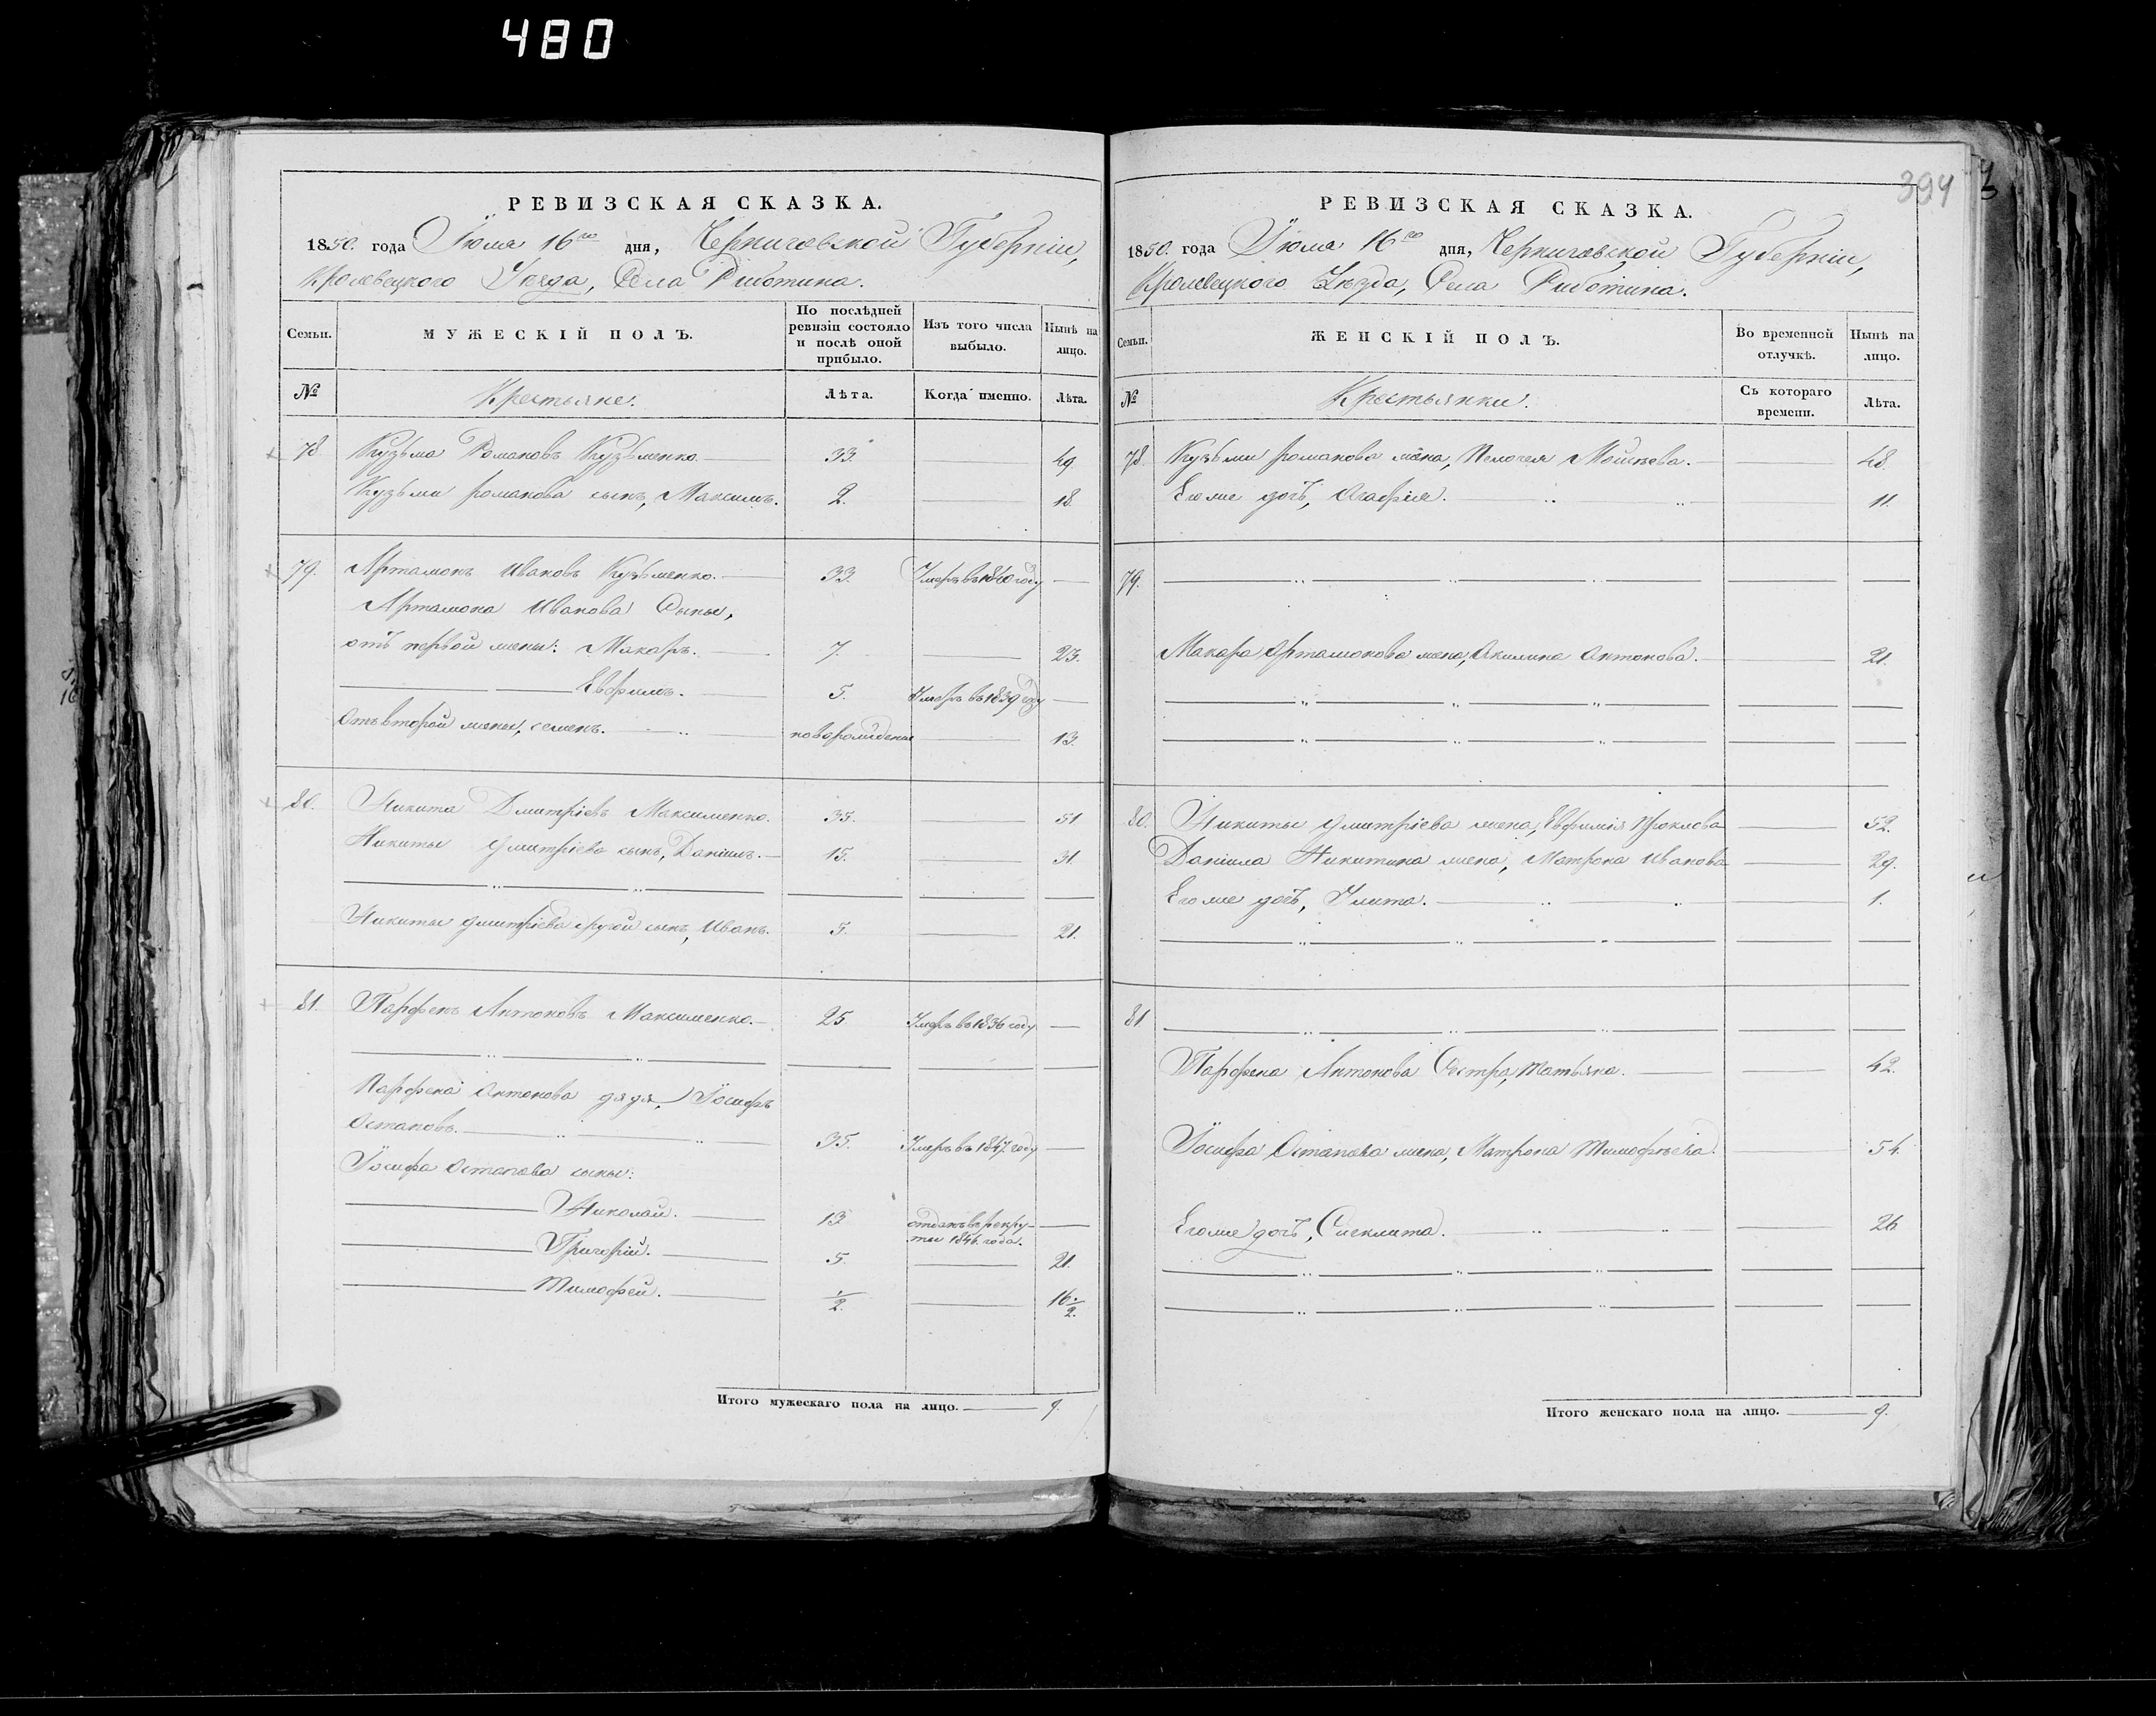 480
РЕВИЗСКАЯ СКАЗКА.
1850. года Іюля 16го дня, Черниговской Губерніи,
Кролевецкого Уѣзда, Села Риботина.
Семьи.
МУЖЕСКІЙ ПОЛЪ.
По послѣдней ревизіи состояло и послѣ оной прибыло.
Изъ того числа выбыло.
Нынѣ на лицо.
№ Крестьяне. Лѣта. Когда именно. Лѣта.
78. Кузьма Романовъ Кузьменко. 33. 49.
Кузьмы романова сынъ, Максимъ. 2. 18.
79. Артамонъ Ивановъ Кузьменко. 33. Умеръ въ 1840 году
Артамона Иванова Сыны,
отъ первой жены: Макаръ. 7. 23.
Евфимъ. 5. Умеръ въ 1839 году
Отъ второй жены, семенъ. новорожденый 13.
80. Никита Дмитріевъ Максименко. 35. 51
Никиты дмитріева сынъ, Даніилъ. 15. 31.
Никиты дмитріева другой сынъ, Иванъ. 5. 21.
81. Парфенъ Антоновъ Максименко. 25 Умеръ въ 1836 году
Парфена Антонова дядя, Іосифъ
Остаповъ. 35. Умеръ въ 1847 году
Іосифа Остапова сыны:
Николай. 13 отданъ въ рекру-
ты 1846. года.
Григорій. 5. 21.
Тимофей. 1/2. 16 1/2.
Итого мужескаго пола на лицо. 9.
394
РЕВИЗСКАЯ СКАЗКА.
1850. года Іюля 16го дня, Черниговской Губерніи,
Кролевецкого Уѣзда, Села Риботина.
Семьи.
ЖЕНСКІЙ ПОЛЪ.
Во временной отлучкѣ.
Нынѣ на лицо.
№ Крестьянки. Съ котораго времени. Лѣта.
78. Кузьмы романова жена, Пелагея Мойсѣева. 48.
Его же дочь, Агафія. 11.
79.
Макара Артамонова жена, Акилина Антонова. 21.
80. Никиты дмитріева жена, Евфимія Проклова 52.
Даніила Никитина жена, Матрона Иванова 29.
Его же дочь, Улита. 1.
81
Парфена Антонова Сестра, Татьяна. 42.
Іосифа Остапова жена, Матрона Тимофѣева. 54.
Его же дочь, Синклита. 26
Итого женскаго пола на лицо. 9.